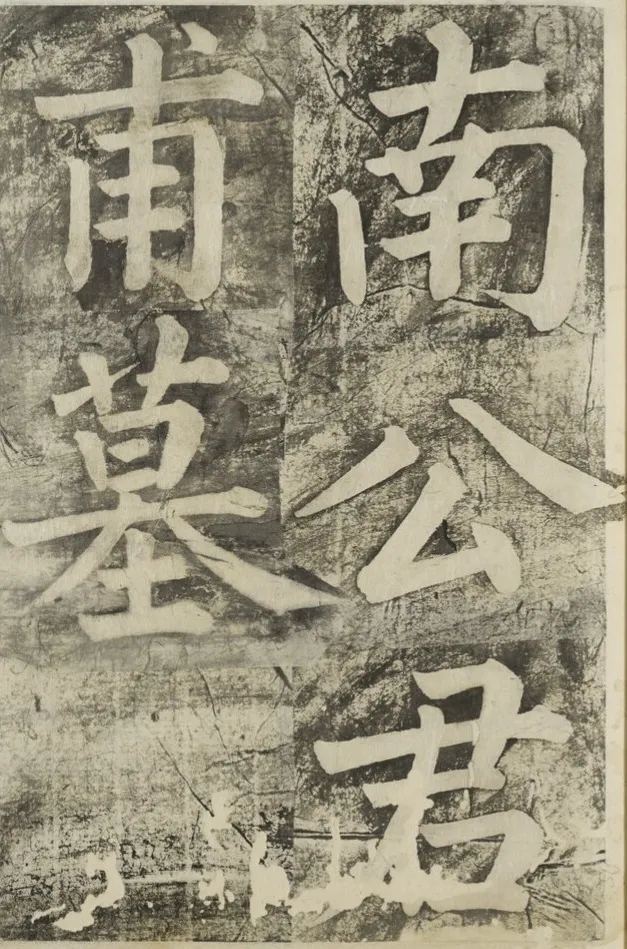 南公君
甫墓